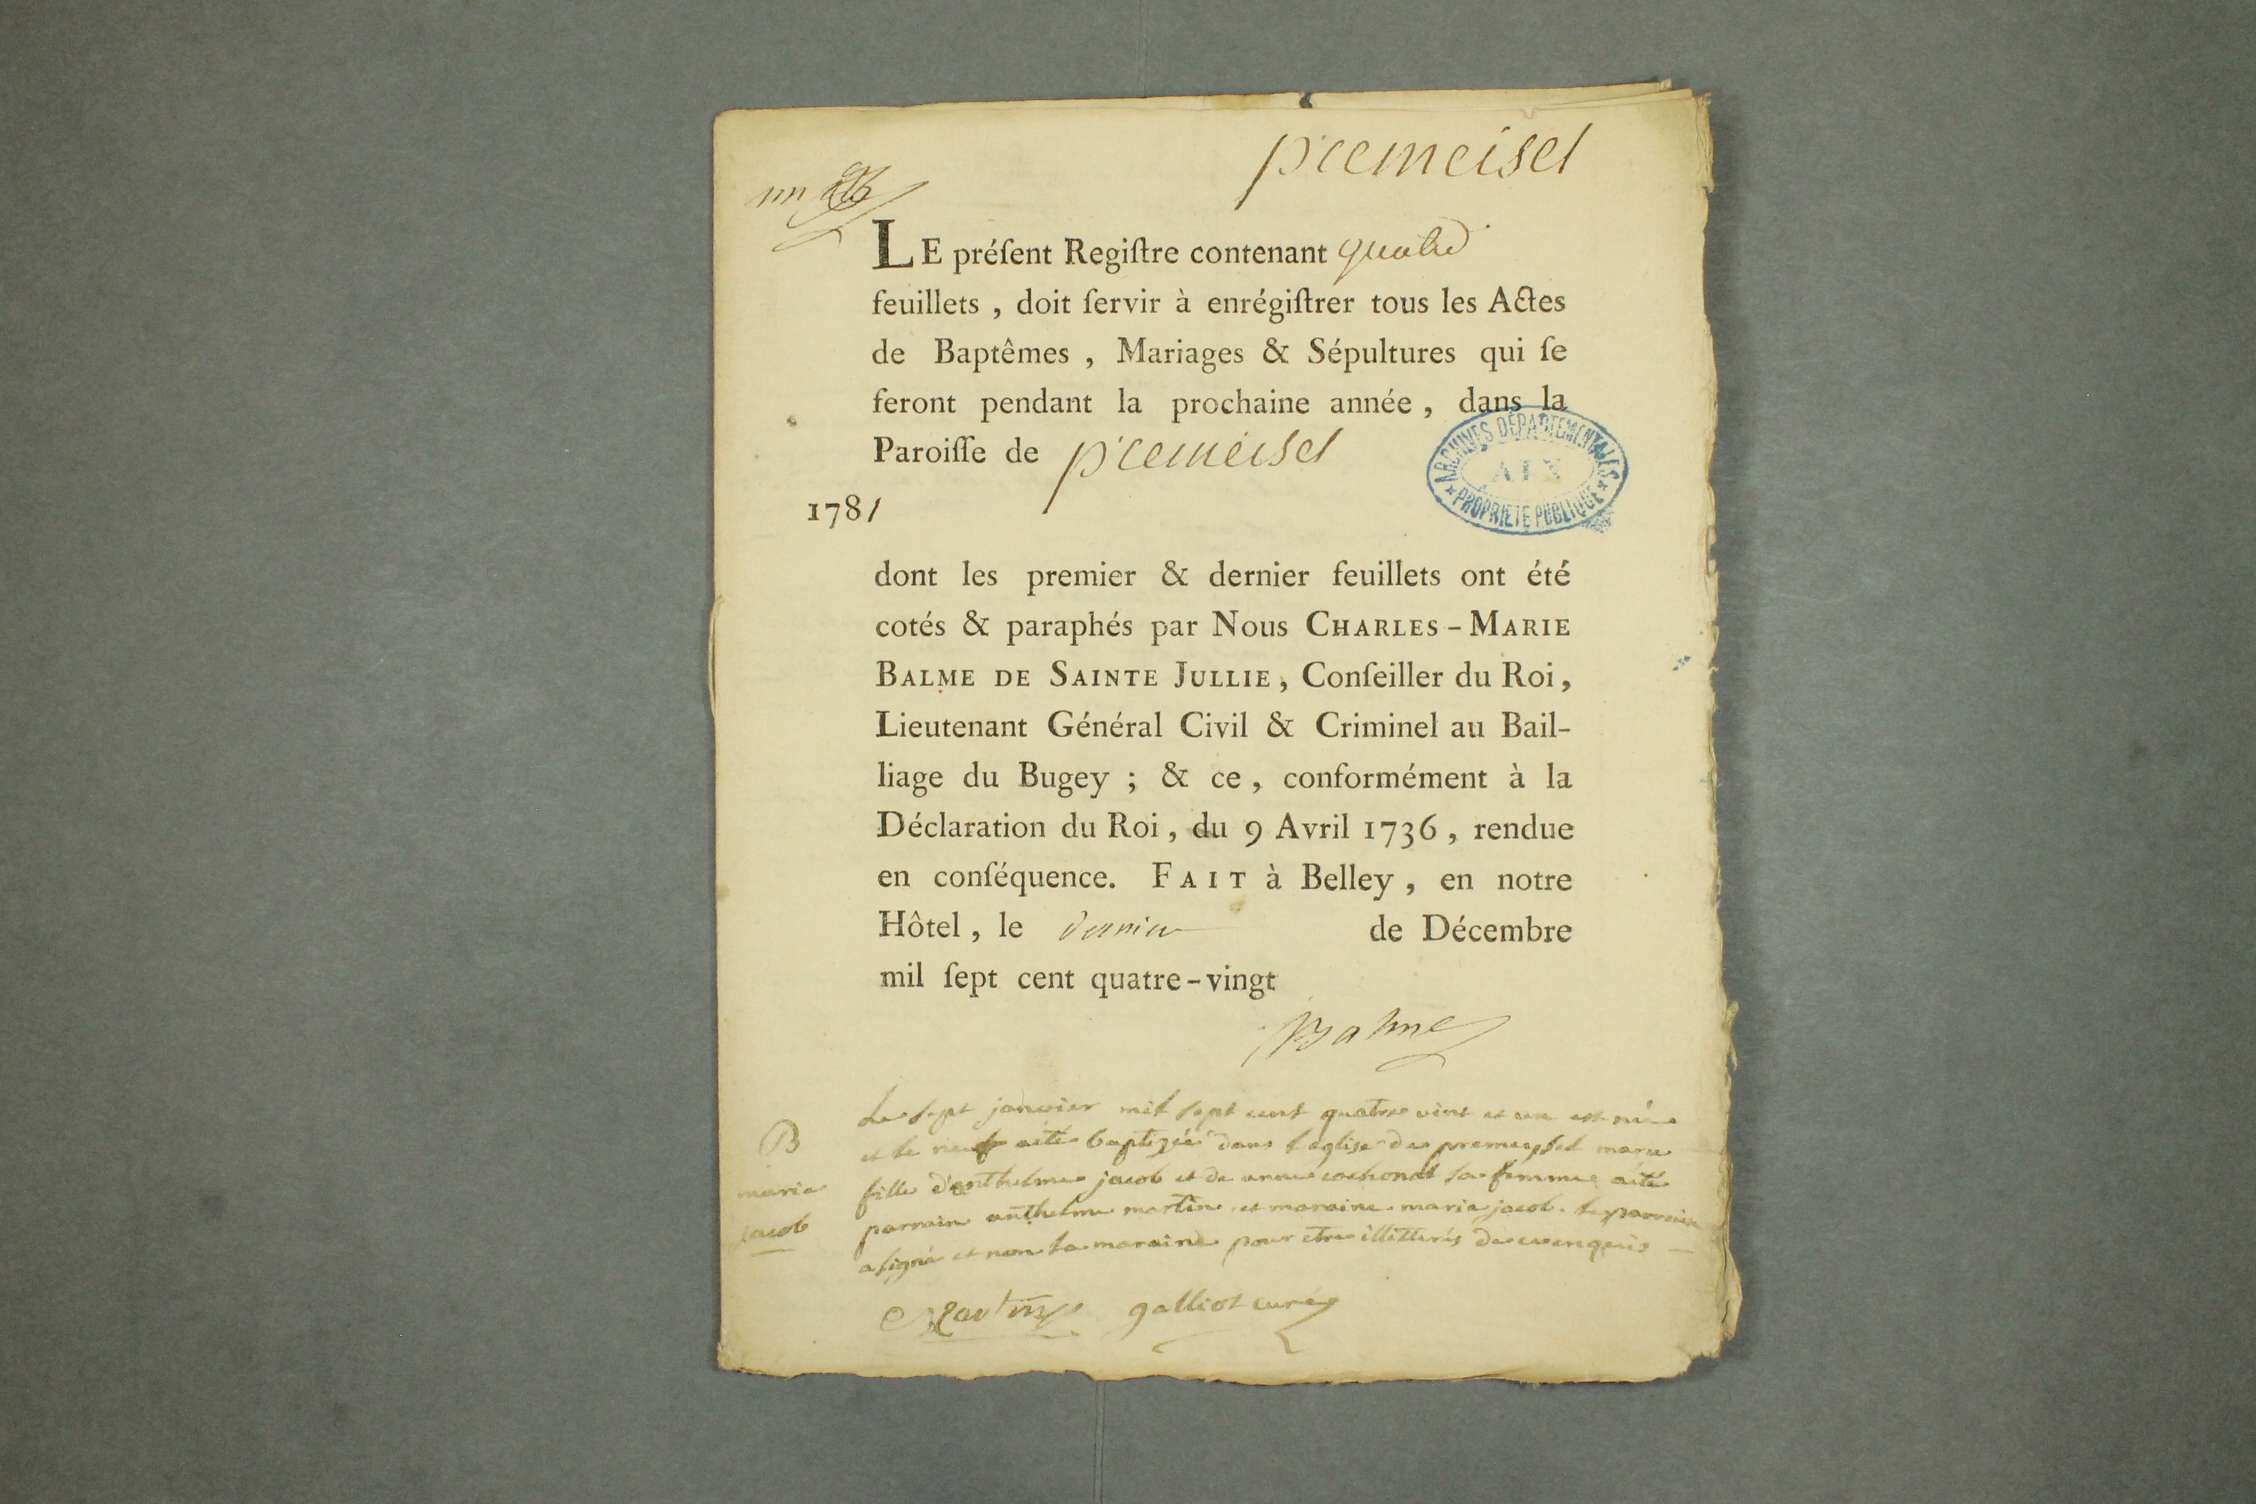 premeisel
un
LE préſent Regiſtre contenant quatre
feuillets , doit ſervir à enrégiſtrer tous les Actes
de Baptêmes , Mariages & Sépultures qui ſe
feront pendant la prochaine année , dans la
Paroiſſe de premeisel
ARCHIVES DÉPARTEMENTALES
AIN
PROPRIÉTÉ PUBLIQUE
1781
dont les premier & dernier feuillets ont été
cotés & paraphés par Nous CHARLES-MARIE
BALME DE SAINTE JULLIE, Conſeiller du Roi,
Lieutenant Général Civil & Criminel au Bail-
liage du Bugey ; & ce , conformément à la
Déclaration du Roi, du 9 Avril 1736 , rendue
en conſéquence. FAIT à Belley , en notre
Hôtel , le dernier de Décembre
mil ſept cent quatre-vingt
Balme
B
marie
jacob
Le sept janvier mil sept cent quatre vint et un est née
et le neuf aité baptizéé dans l'eglise de premeyssel marie
fille d'anthelme jacob et de anne cochonat sa femme aité
parrain anthelme martin et maraine marie jacob. le parrain
a signé et non la maraine pour etre illitterés de ce enquis
Martin galliot curé